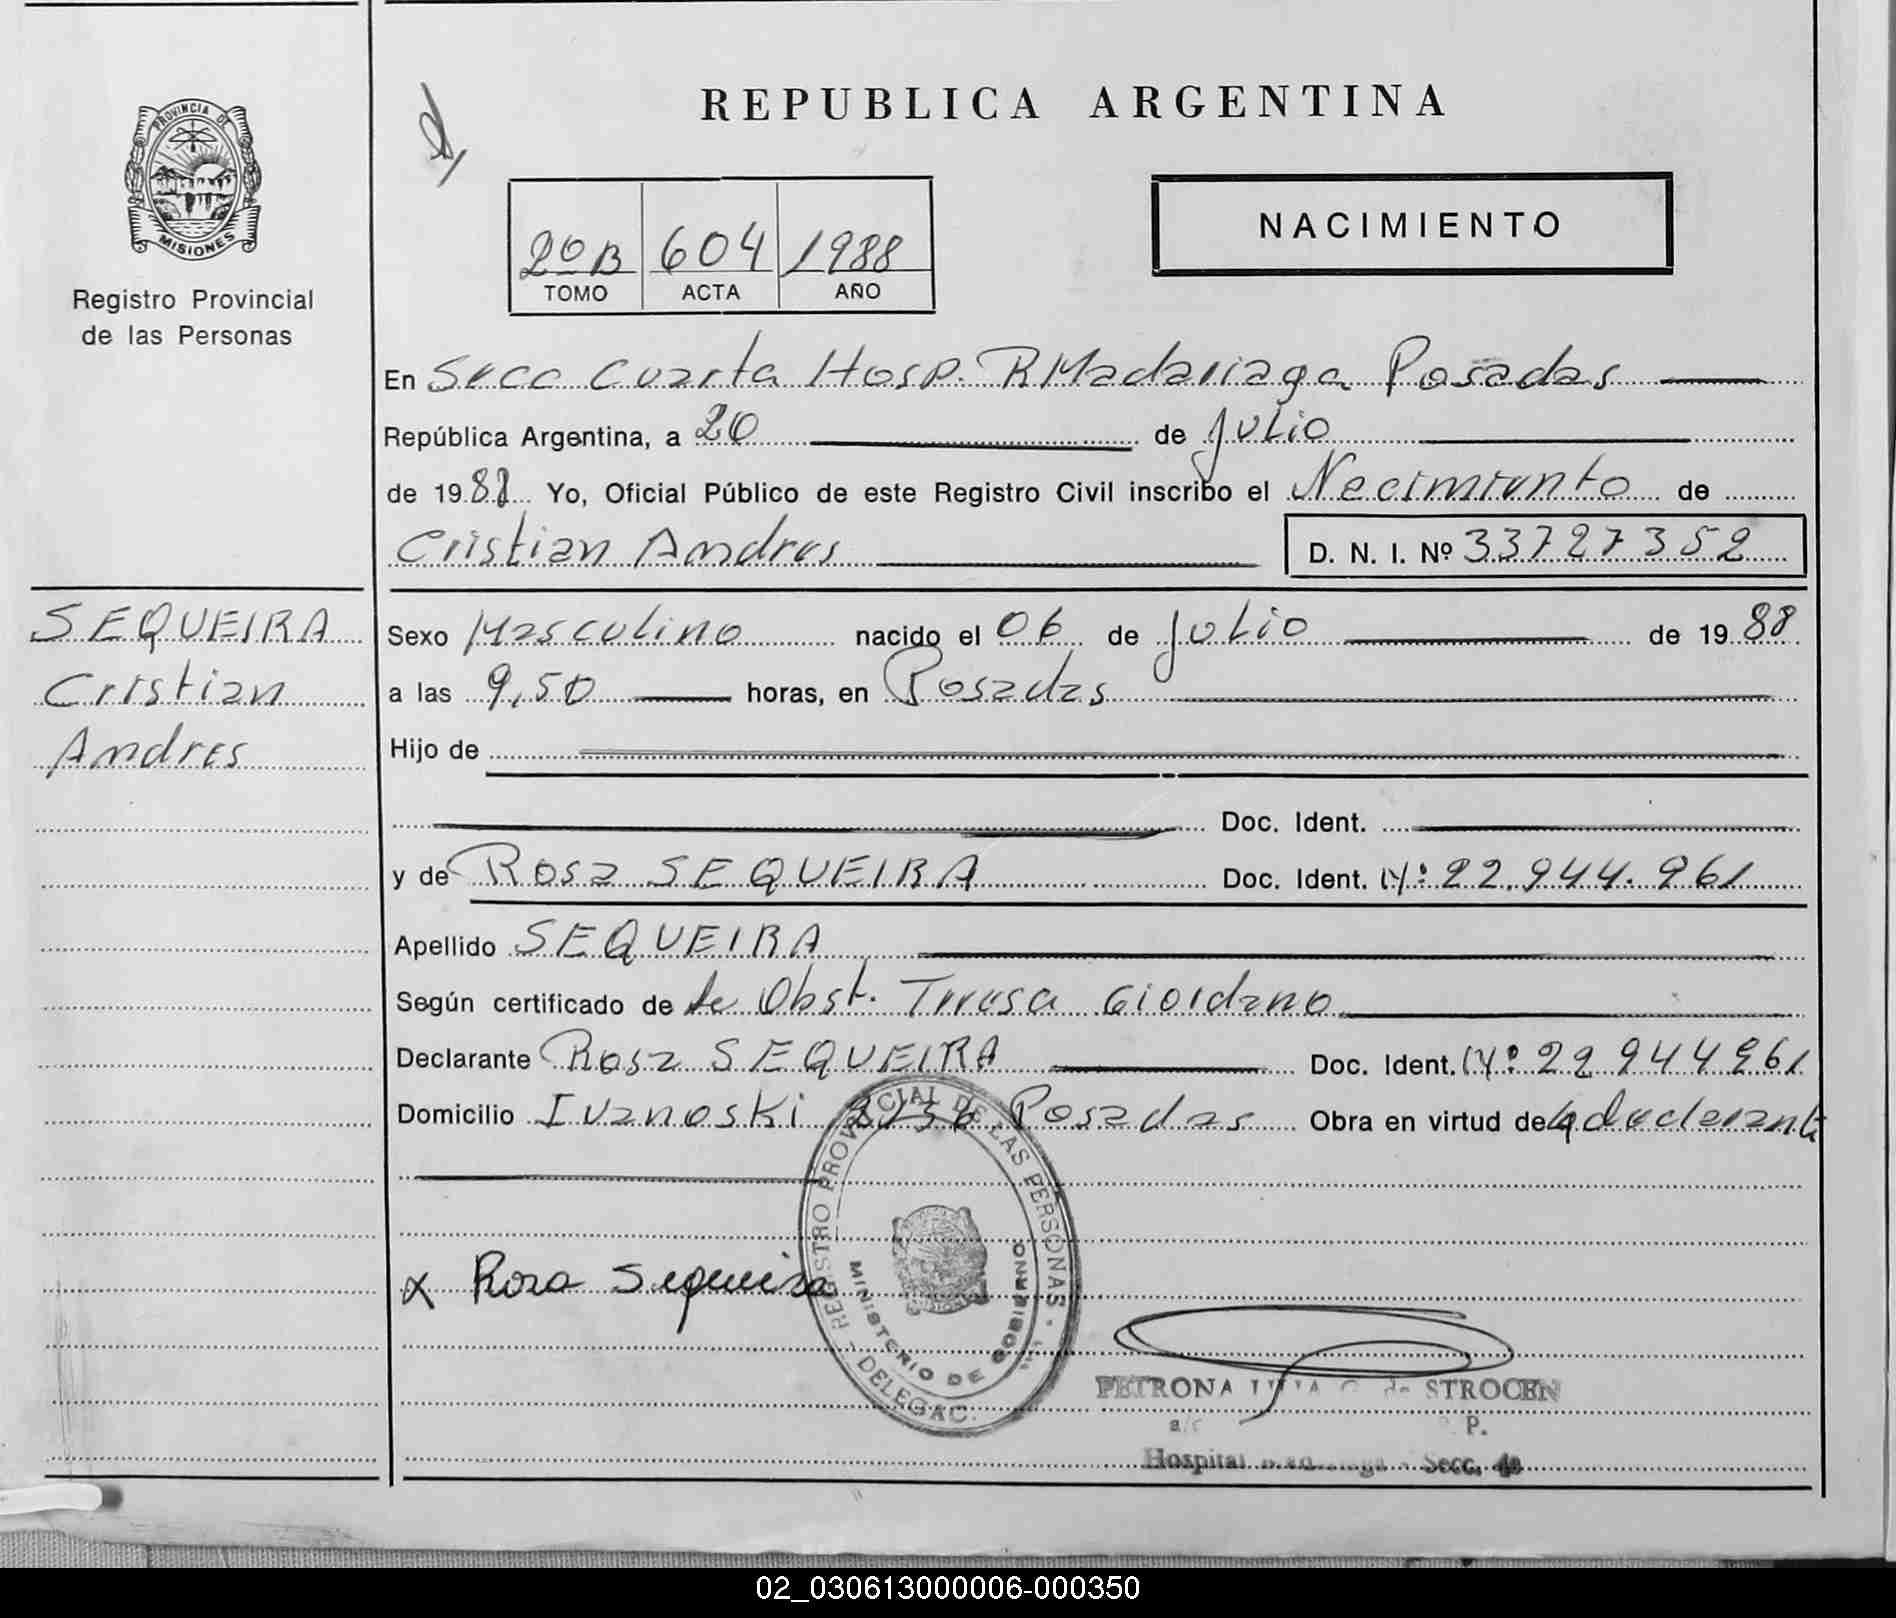 REPUBLICA ARGENTINA
PROVINCIA DE
MISIONES
Registro Provincial
de las Personas
NACIMIENTO
2º B 604 1988
TOMO ACTA AÑO
En Secc Cuarta Hosp. R Madariaga Posadas
República Argentina, a 20 de Julio
de 1988 Yo, Oficial Público de este Registro Civil inscribo el Nacimiento de
Cristian Andres D. N. I. Nº 33727352
SEQUEIRA
Cristian
Andres
Sexo Masculino nacido el 06 de Julio de 1988
a las 9,50 horas, en Posadas
Hijo de
Doc. Ident.
y de Rosa SEQUEIRA Doc. Ident. Nº 22.944.961
Apellido SEQUEIRA
Según certificado de la Obst. Teresa Giordano
Declarante Rosa SEQUEIRA Doc. Ident. Nº 22944961
Domicilio Ivanoski Posadas Obra en virtud de la declarante
x Rosa Sequeira
REGISTRO PROVINCIAL DE LAS PERSONAS
MINISTERIO DE GOBIERNO
DELEGAC.
PETRONA de STROCEN
P.
Hospital Secc. 4a
02_030613000006-000350